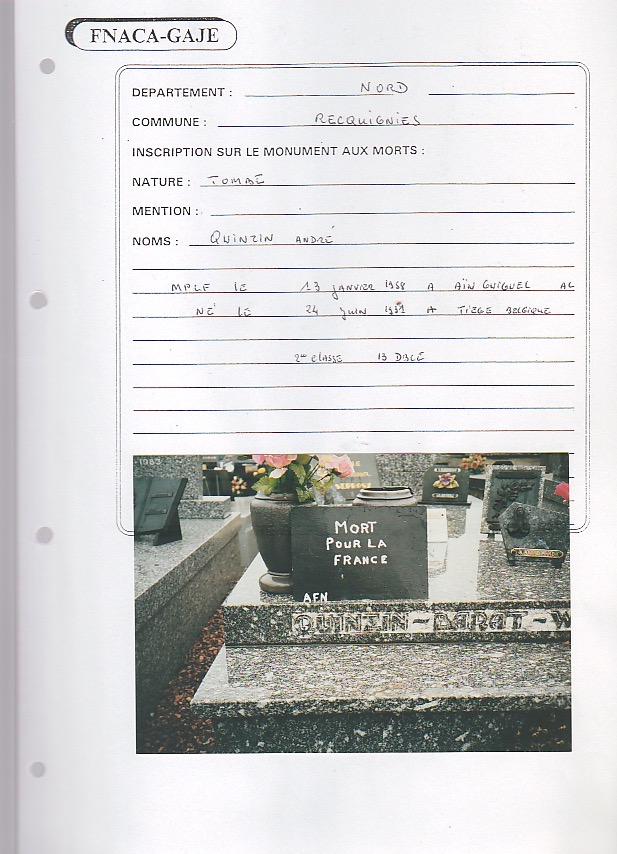 FNACA-GAJE
DEPARTEMENT : NORD
COMMUNE : RECQUIGNIES
INSCRIPTION SUR LE MONUMENT AUX MORTS :
NATURE : TOMBE
MENTION :
NOMS : QUINZIN ANDRÉ
MPLF LE 13 JANVIER 1958 A AÏN GUIGUEL AL
NÉ LE 24 Juin 1931 A TIÈGE BELGIQUE
2me Classe 13 DBLE
1983
MORT
POUR LA
FRANCE
AFN
QUINZIN - BARAT - W